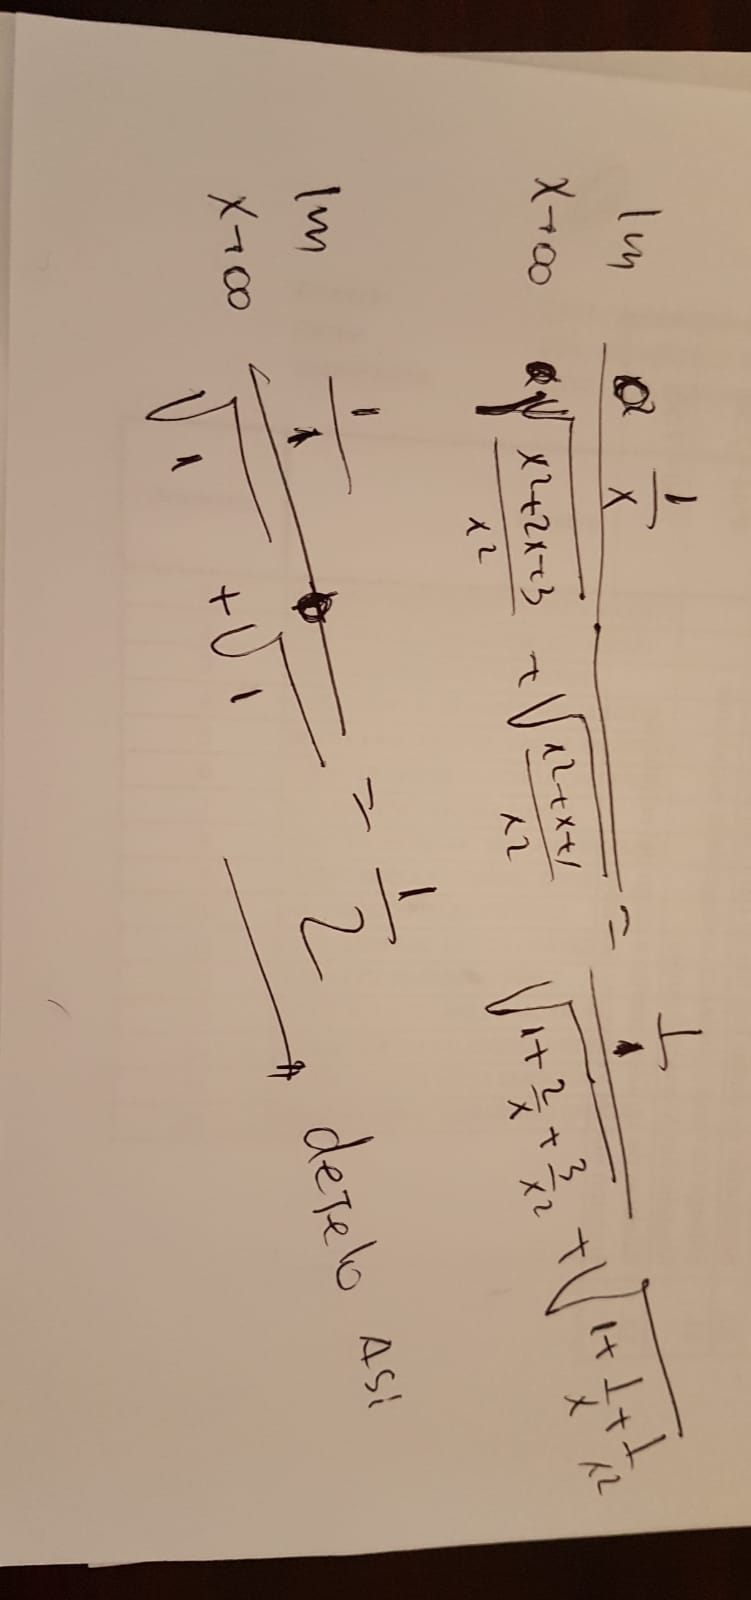 lim x→∞ (1/x) / (√((x²+2x+3)/x²) + √((x²+x+1)/x²)) = (1/1) / (√(1+2/x+3/x²) + √(1+1/x+1/x²))
lim x→∞ (1/1) / (√1 + √1) = 1/2 → dejelo ASi